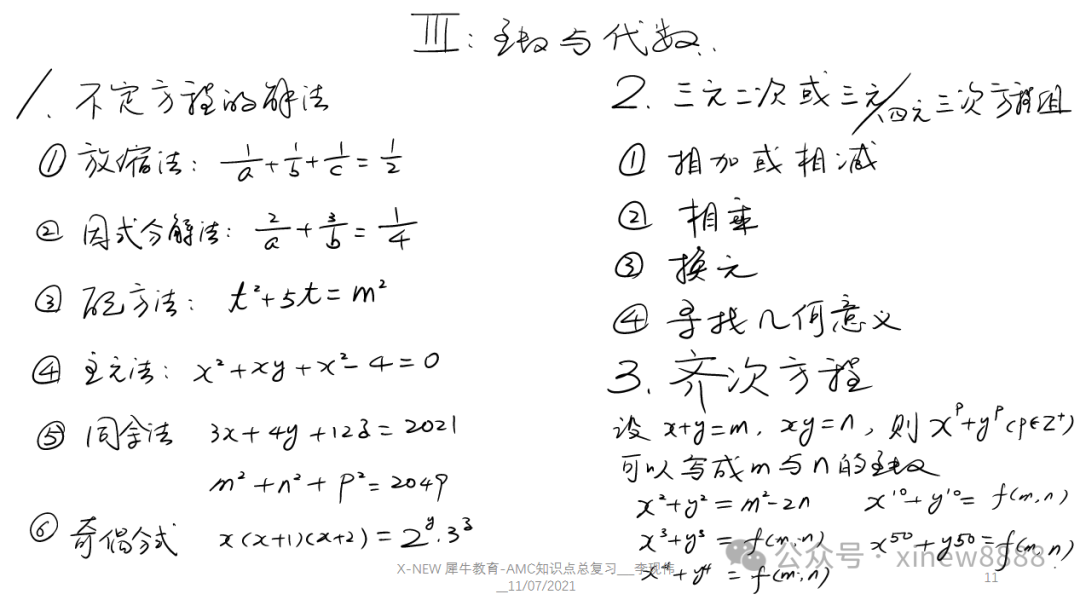 Ⅲ: 函数与代数.
1. 不定方程的解法
① 放缩法: 1/a + 1/b + 1/c = 1/2
② 因式分解法: 2/a + 3/b = 1/4
③ 配方法: t²+5t=m²
④ 主元法: x²+xy+x²-4=0
⑤ 同余法 3x+4y+12z=2021
m²+n²+p²=2049
⑥ 奇偶分式 x(x+1)(x+2)=2^y·3^z
2. 三元二次或三元/四元三次方程组
① 相加或相减
② 相乘
③ 换元
④ 寻找几何意义
3. 齐次方程
设 x+y=m, xy=n, 则 x^p+y^p (p∈Z⁺)
可以写成m与n的函数
x²+y²=m²-2n x¹⁰+y¹⁰= f(m,n)
x³+y³ = f(m,n) x⁵⁰+y⁵⁰=f(m,n)
x⁴+y⁴ = f(m,n)
公众号·xinew8888
X-NEW 犀牛教育-AMC知识点总复习__李现伟
__11/07/2021
11